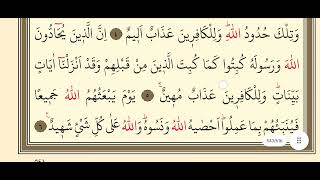 وَتِلْكَ حُدُودُ اللّٰهِۜ وَلِلْكَافِر۪ينَ عَذَابٌ اَل۪يمٌ ﴿٤﴾ اِنَّ الَّذ۪ينَ يُحَٓادُّونَ
اللّٰهَ وَرَسُولَهُ كُبِتُوا كَمَا كُبِتَ الَّذ۪ينَ مِنْ قَبْلِهِمْ وَقَدْ اَنْزَلْنَٓا اٰيَاتٍ
بَيِّنَاتٍۜ وَلِلْكَافِر۪ينَ عَذَابٌ مُه۪ينٌۚ ﴿٥﴾ يَوْمَ يَبْعَثُهُمُ اللّٰهُ جَم۪يعًا
فَيُنَبِّئُهُمْ بِمَا عَمِلُواۜ اَحْصٰيهُ اللّٰهُ وَنَسُوهُۜ وَاللّٰهُ عَلٰى كُلِّ شَيْءٍ شَه۪يدٌ۟ ﴿٦﴾